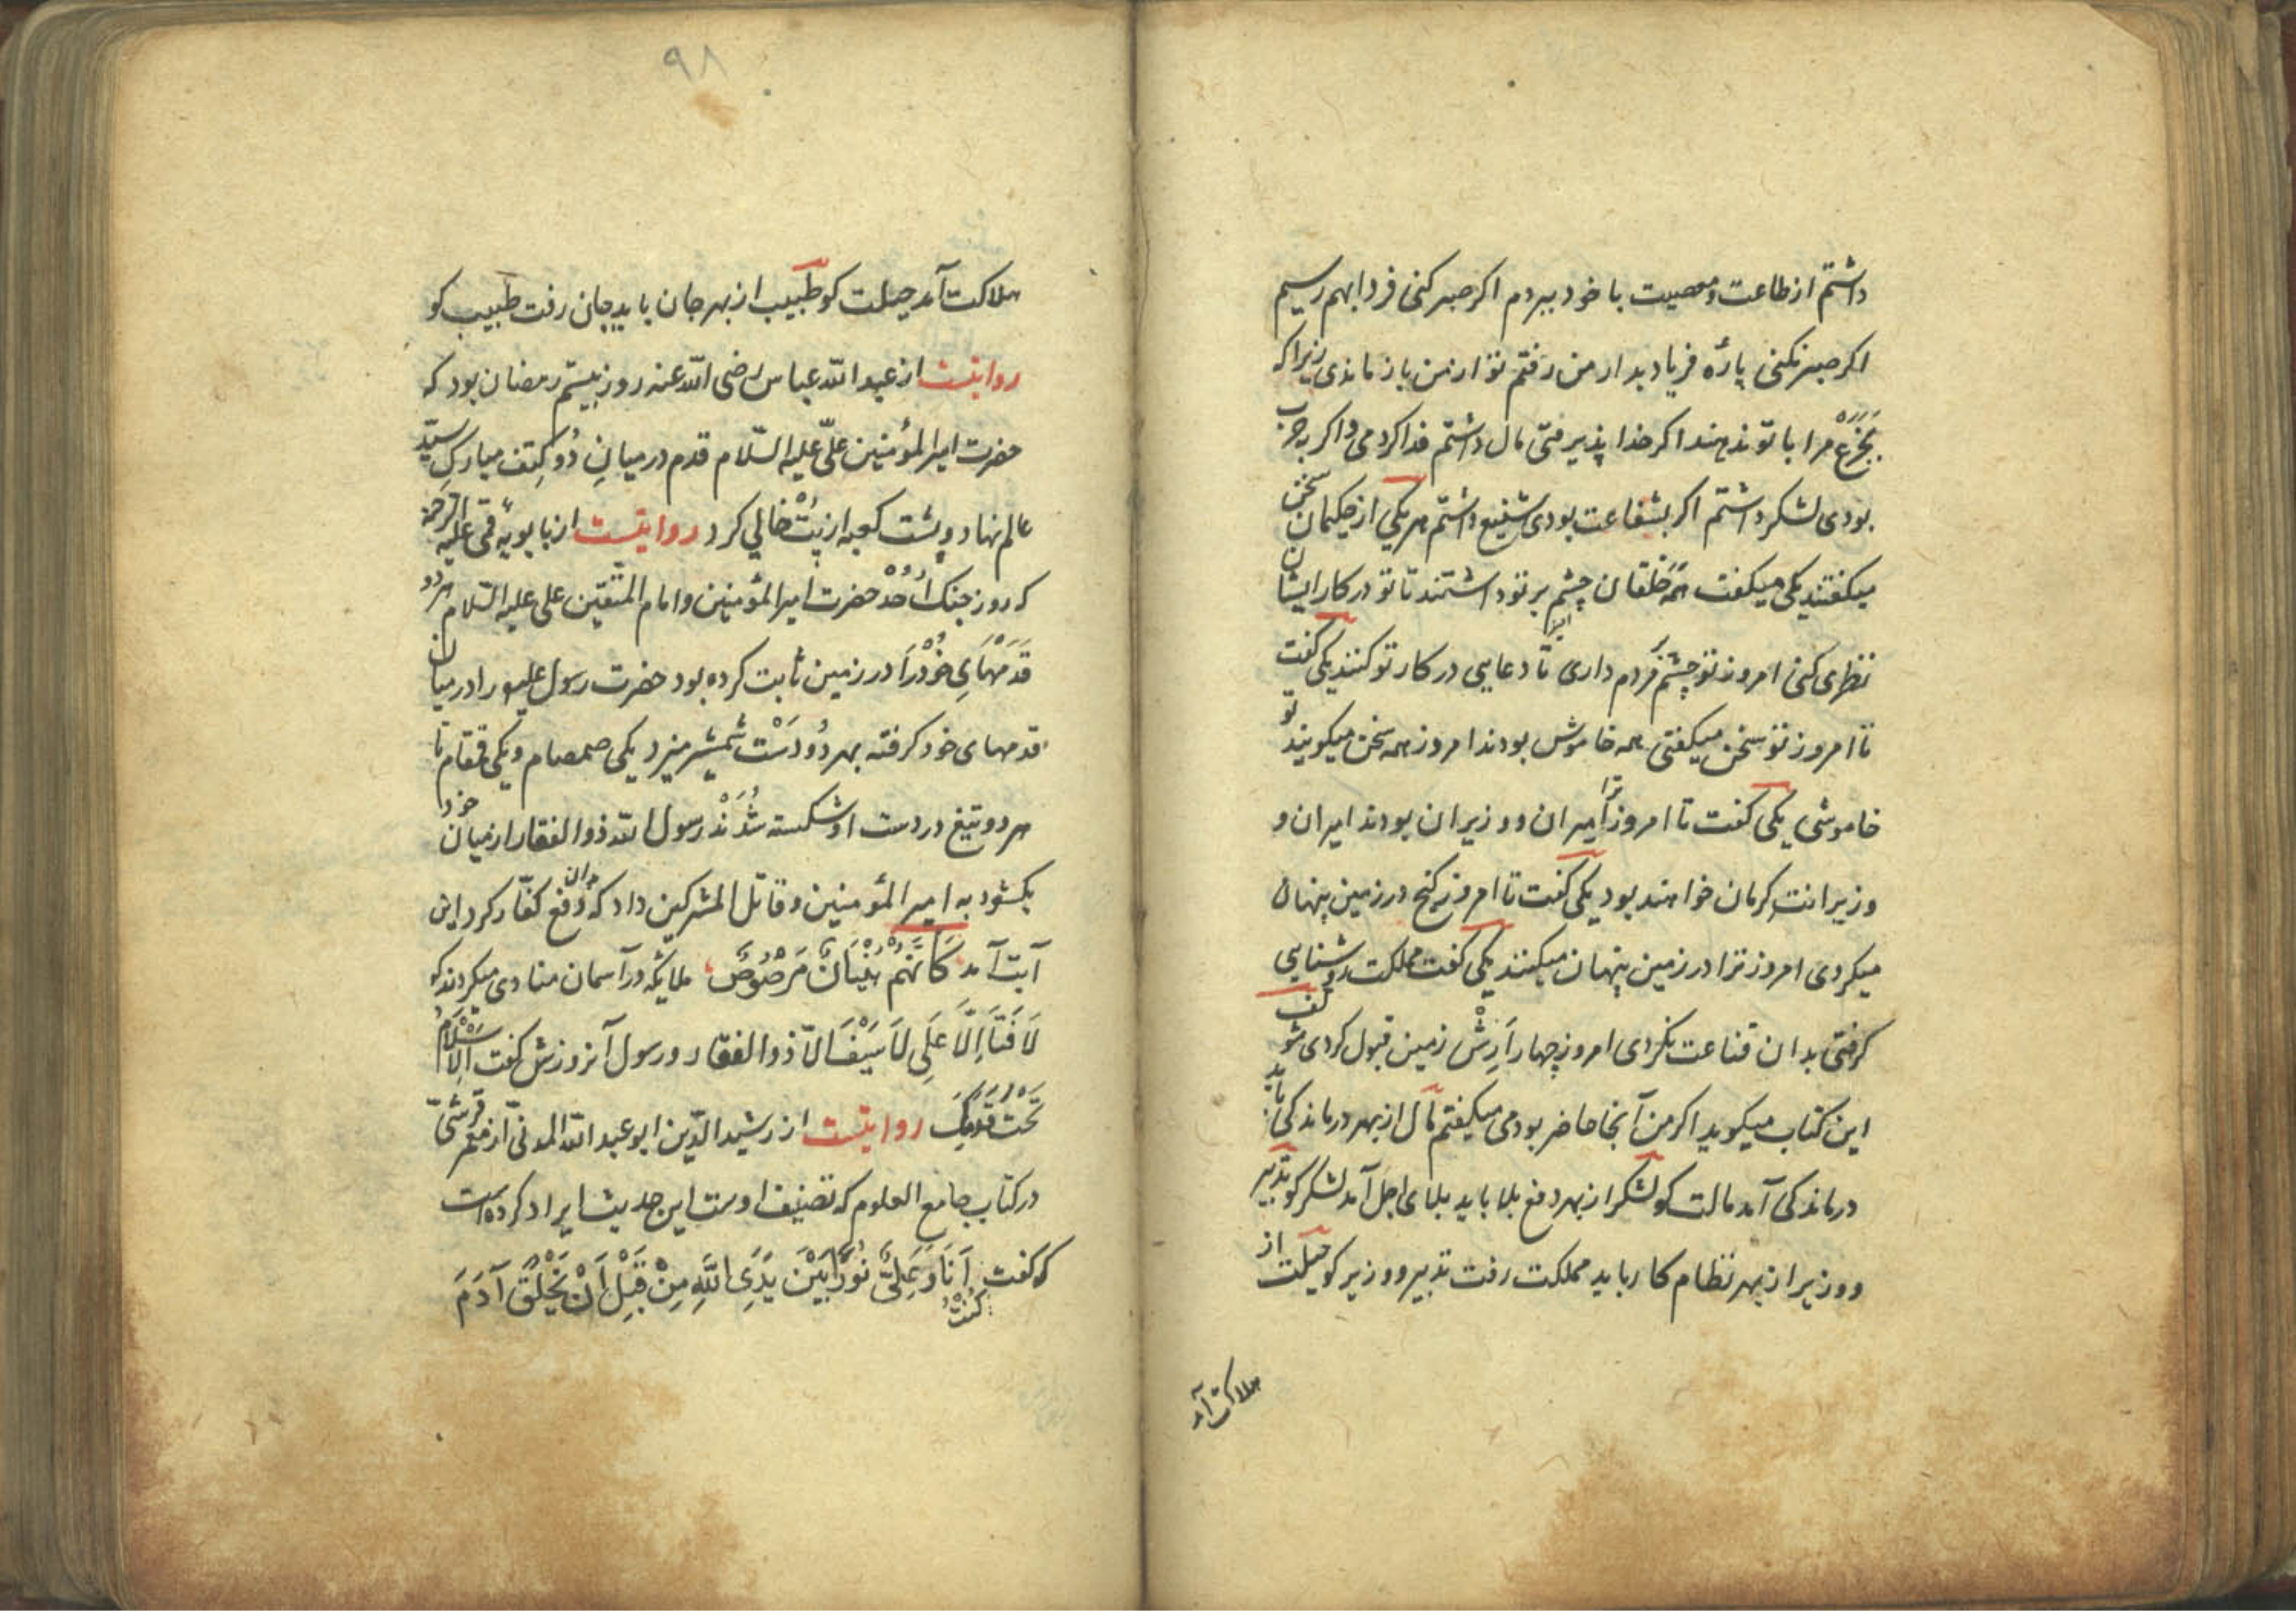 داشتم از طاعت و معصیت با خود ببردم اکر صبر کنی فردا بهم رسیم
اکر صبر نکنی پارهٔ فریاد بدار من رفتم تو از من باز ماندی زیرا که
بجزع مرا با تو ندهند اکر خدا پذیرفتی مال داشتم فدا کردمی و اکر به حرب
بودی لشکر داشتم اکر بشفاعت بودی شفیع داشتم هر یکی از حکیمان سخن
میکفتند یکی میکفت همه خلقان چشم بر تو داشتند تا تو در کار ایشان
نظری کنی امروز تو چشم بر مردم داری تا دعایی در کار تو کنند یکی کفت
تا امروز تو سخن میکفتی همه خاموش بودند امروز همه سخن میکویند تو
خاموشی یکی کفت تا امروز ترا امیران و وزیران بودند امیران و
وزیرانت کرمان خواهند بود یکی کفت تا امروز کنج در زمین پنهان
میکردی امروز ترا در زمین پنهان میکنند یکی کفت مملکت روشنایی
کرفتی بدان قناعت نکردی امروز چهار ارش زمین قبول کردی مؤلف
این کتاب میکوید اکر من آنجا حاضر بودمی میکفتم مال از بهر درماندکی باید
درماندکی آمد مالت کو لشکر از بهر دفع بلا باید بلای اجل آمد لشکر کو تدبیر
و وزیر از بهر نظام کار باید مملکت رفت تدبیر و وزیر کو حیلت از
هلاکت آمد
۹۸
هلاکت آمد حیلت کو طبیب از بهر جان باید جان رفت طبیب کو
روایتست از عبد الله عباس رضی الله عنه روز بیستم رمضان بود که
حضرت امیر المؤمنین علیّ علیه السّلام قدم در میانِ دُو کتف مبارک سیّد
عالم نهاد و پشت کعبه از بُت خالی کرد روایتست از بابویهٔ قمی علیه الرحمة
که روز جنک اُحُد حضرت امیر المؤمنین و امام المتقین علی علیه السّلام هر دو
قَدَمْهَایِ خُوْدْرَا در زمین ثابت کرده بود حضرت رسول را در میان
قدمهای خود کرفته بهر دُو دَسْت شمشیر میزد یکی صمصام و یکی قمقام تا
هر دو تیغ در دست او شکسته شُدَنْد رسول الله ذو الفقار از میان خود
بکشود به امیر المؤمنین و قاتل المشرکین داد که بدان دفع کفّار کرد این
آیت آمد کَاَنَّهُمْ بُنْیَانٌ مَرْصُوْصٌ ملایکه در آسمان منادی میکردند که
لَا فَتَا اِلَّا عَلِی لَا سَیْفَ اِلاّ ذو الفقار و رسول آنروزش کفت اَلْاِسْلَامُ
تَحْتَ قَدَمَیْکَ روایتست از رشید الدّین ابو عبد الله المدنیّ از قرشیّ
در کتاب جامع العلوم که تصنیف اوست این حدیث ایراد کرده است
که کفت کُنْتُ اَنَا وَ عَلِیٌّ نُوْرًا بَیْنَ یَدَیِ اللّهِ مِنْ قَبْلِ اَنْ یَخْلُقَ آدَمَ